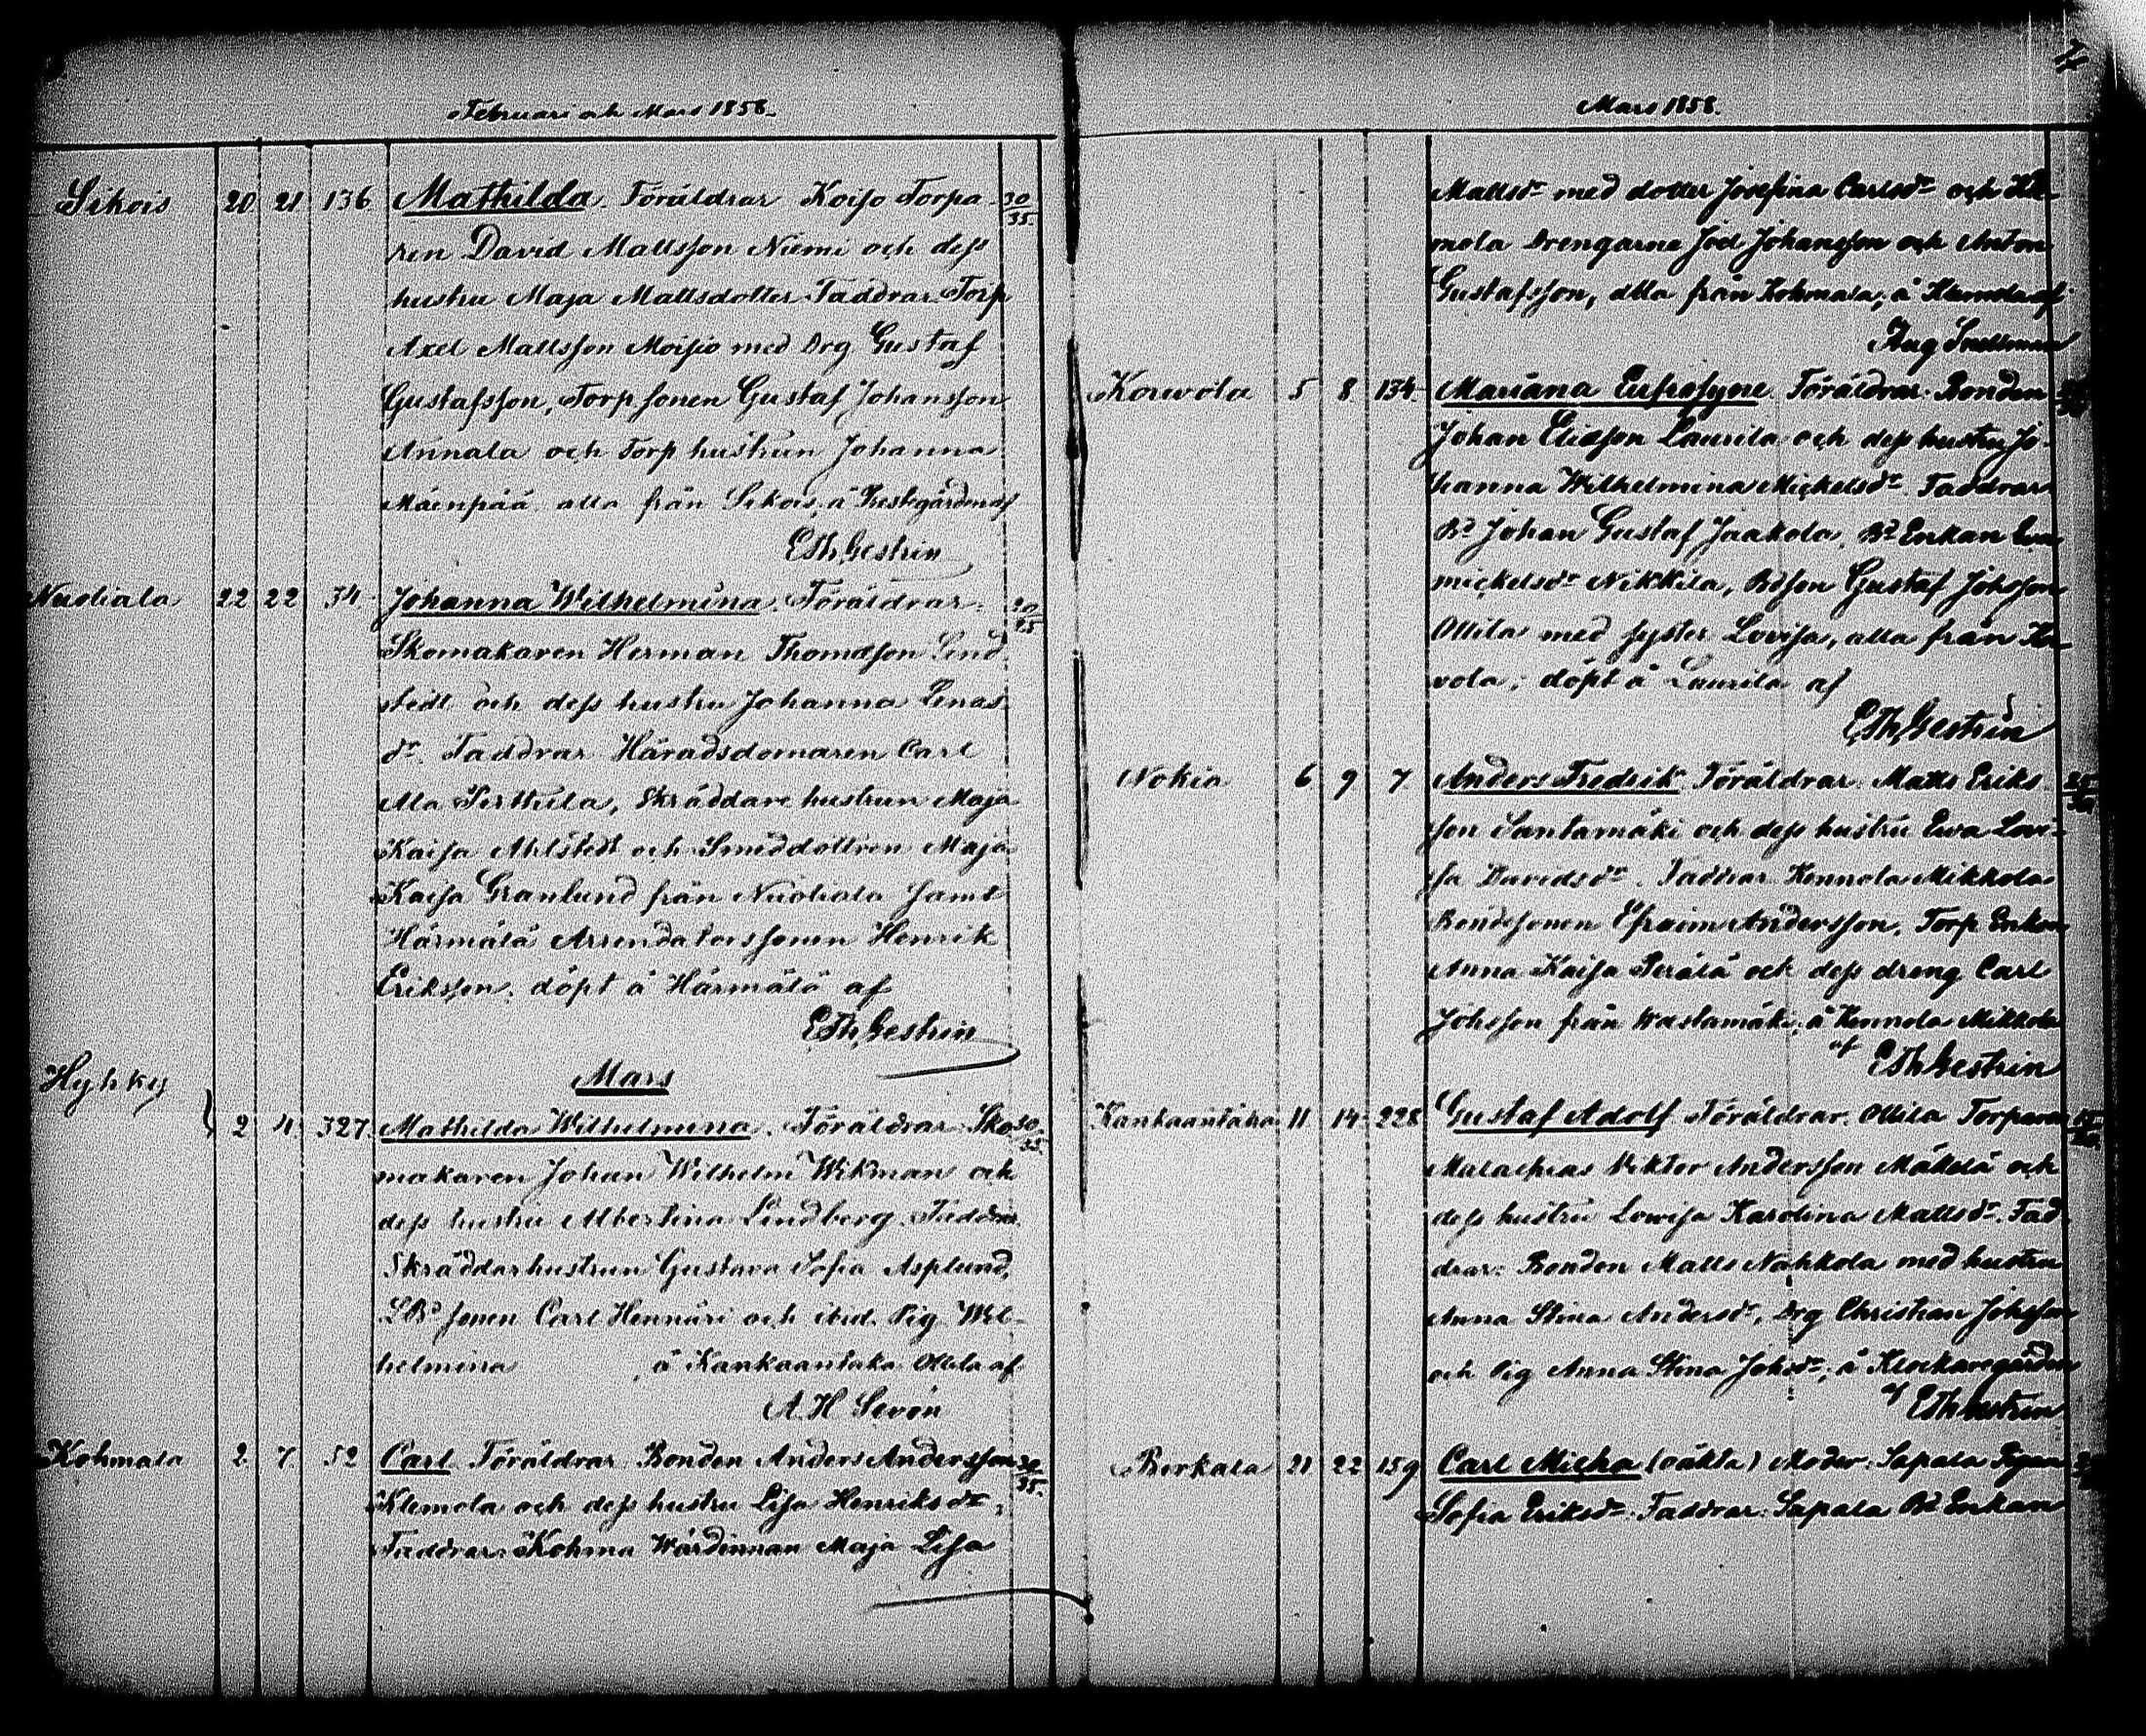 Februari och Mars 1858.
Sikois 20 21 136 Mathilda. Föräldrar Koiso Torpa- 30/35.
ren David Mattsson Niemi och dess
hustru Maja Mattsdotter. Faddrar. Torp
Axel Mattsson Moisio med Drg Gustaf
Gustafsson, Torp sonen Gustaf Johansson
Annala och Torp hustrun Johanna
Mäenpää alla från Sikois; å Prestgården af
E Th Gestrin
Nuoliala 22 22 34 Johanna Wilhelmina. Föräldrar: 20/25
Skomakaren Herman Thomasson Lind
stedt och dess hustru Johanna Enas
dr. Faddrar Häradsdomaren Carl
Ala Perttula, Skräddare hustrun Maja
Kaisa Ahlstedt och Smeddottren Maja
Kaisa Granlund från Nuoliala samt
Härmälä Arrendatorssonen Henrik
Eriksson; döpt å Härmälä af
E Th Gestrin
Mars
Hyhky 2 4 327 Mathilda Wilhelmina. Föräldrar: Sko 30/35
makaren Johan Wilhelm Wikman och
dess hustru Albertina Lindberg. Faddrar
Skräddarhustrun Gustava Sofia Asplund,
LBd sonen Carl Hennäri och ibid. Pig. Wil-
helmina , å Kankaantaka Ollila af
A. H Sevón
Kohmala 2 7 52 Carl Föräldrar Bonden Anders Andersson 30/35.
Klemola och dess hustru Lisa Henriksdr.
Faddrar. Kohma Wärdinnan Maja Lisa
Mars 1858.
7
Mattsdr med dotter Josefina Carlsdr och Kle-
mola Drengarne Joel Johansson och Anton
Gustafsson, alla från Kohmala; å Klemola af
Aug Snellman
Korvola 5 8 134 Mariana Eufrosyne. Föräldrar. Bonden
Johan Eliasson Laurila och dess hustru Jo-
hanna Wilhelmina Mickelsdr. Faddrar
Bd Johan Gustaf Jaakola, Bd Enkan Eva
Mickelsdr Nikkilä, Bdson Gustaf Johsson
Ollila med syster Lovisa, alla från Kor-
vola; döpt å Laurila af
E Th Gestrin
Nokia 6 9 7 Anders Fredrik Föräldrar: Matts Eriks 25/30
son Santamäki och dess hustru Ewa Lovi-
sa Davidsdr. Faddrar Hennola Mikkola
Bondesonen Efraim Andersson, Torp Enkan
Anna Kaisa Perälä och dess dreng Carl
Johsson från Wastamäki; å Hennola Mikkola
af E Th Gestrin
Kankaantaka 11 14 228 Gustaf Adolf Föräldrar. Ollila Torparen
Malachias Viktor Andersson Mäkelä och
dess hustru Lowisa Karolina Mattsdr. Fad
drar: Bonden Matts Nahkola med hustru
Anna Stina Andersdr, Drg Christian Johsson
och Pig Anna Stina Johsdr; å Klockaregården
af E Th Gestrin
Birkala 21 22 159 Carl Micha (oäkta) Moder: Sapala Pigan
Sofia Eriksdr. Faddrar: Sapala Bd Enkan